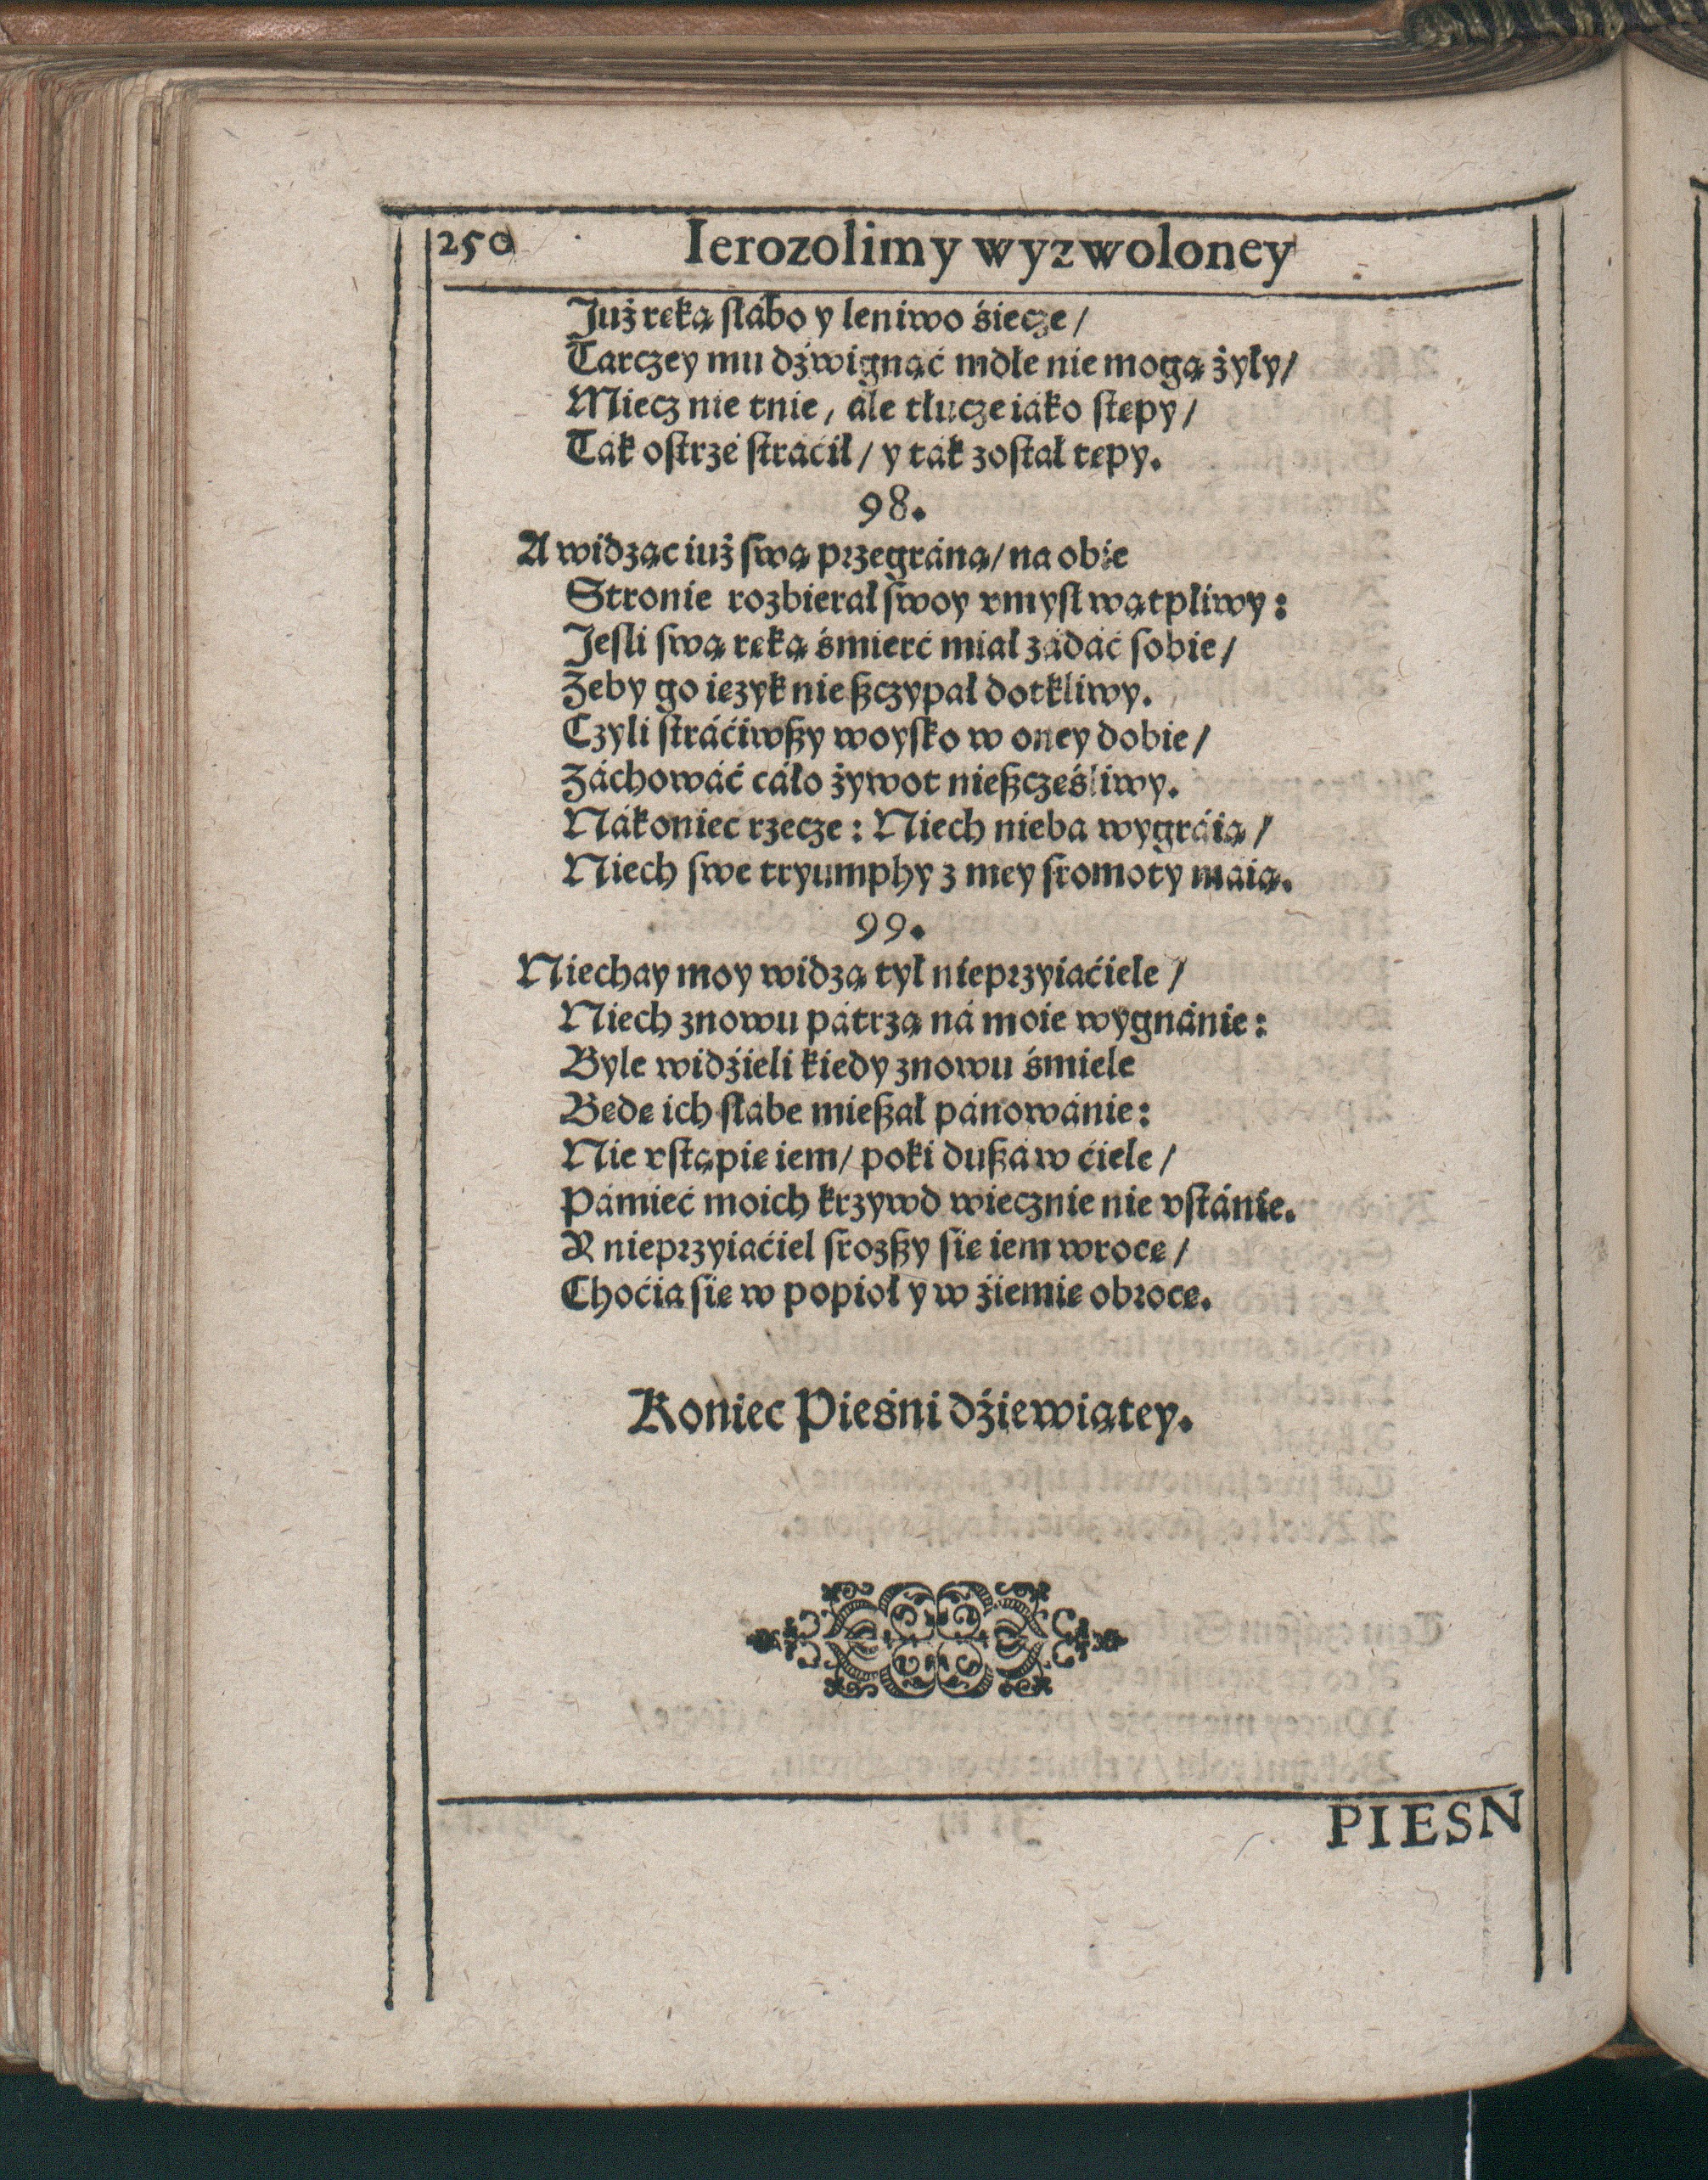 250 Ierozolimy wyzwoloney
Już ręką słábo y leniwo śiecze /
Tarczey mu dźwignąć mdłe nie mogą żyły /
Miecz nie tnie, ále tłucze iáko stępy /
Ták ostrze stráćił / y ták został tępy.
98.
A widząc iuż swą przegráną / na obie
Stronie rozbierał swoy vmysł wątpliwy :
Jesli swą ręką śmierć miał zádáć sobie /
Zeby go ięzyk nie szczypał dotkliwy.
Czyli stráćiwszy woysko w oney dobie /
Záchowáć cáło żywot nieszcześliwy.
Nákoniec rzecze : Niech nieba wygráią /
Niech swe tryumphy z mey sromoty maią.
99.
Niechay moy widzą tył nieprzyiaćiele /
Niech znowu pátrzą ná moie wygnánie :
Byle widźieli kiedy znowu śmiele
Będę ich słábe mieszał pánowánie :
Nie vstąpię iem / poki duszá w ćiele /
Pámięć moich krzywd wiecznie nie vstánie.
Y nieprzyiaćiel srozszy się iem wrocę /
Choćia się w popioł y w źiemię obrocę.
Koniec Pieśni dźiewiątey.
PIESN